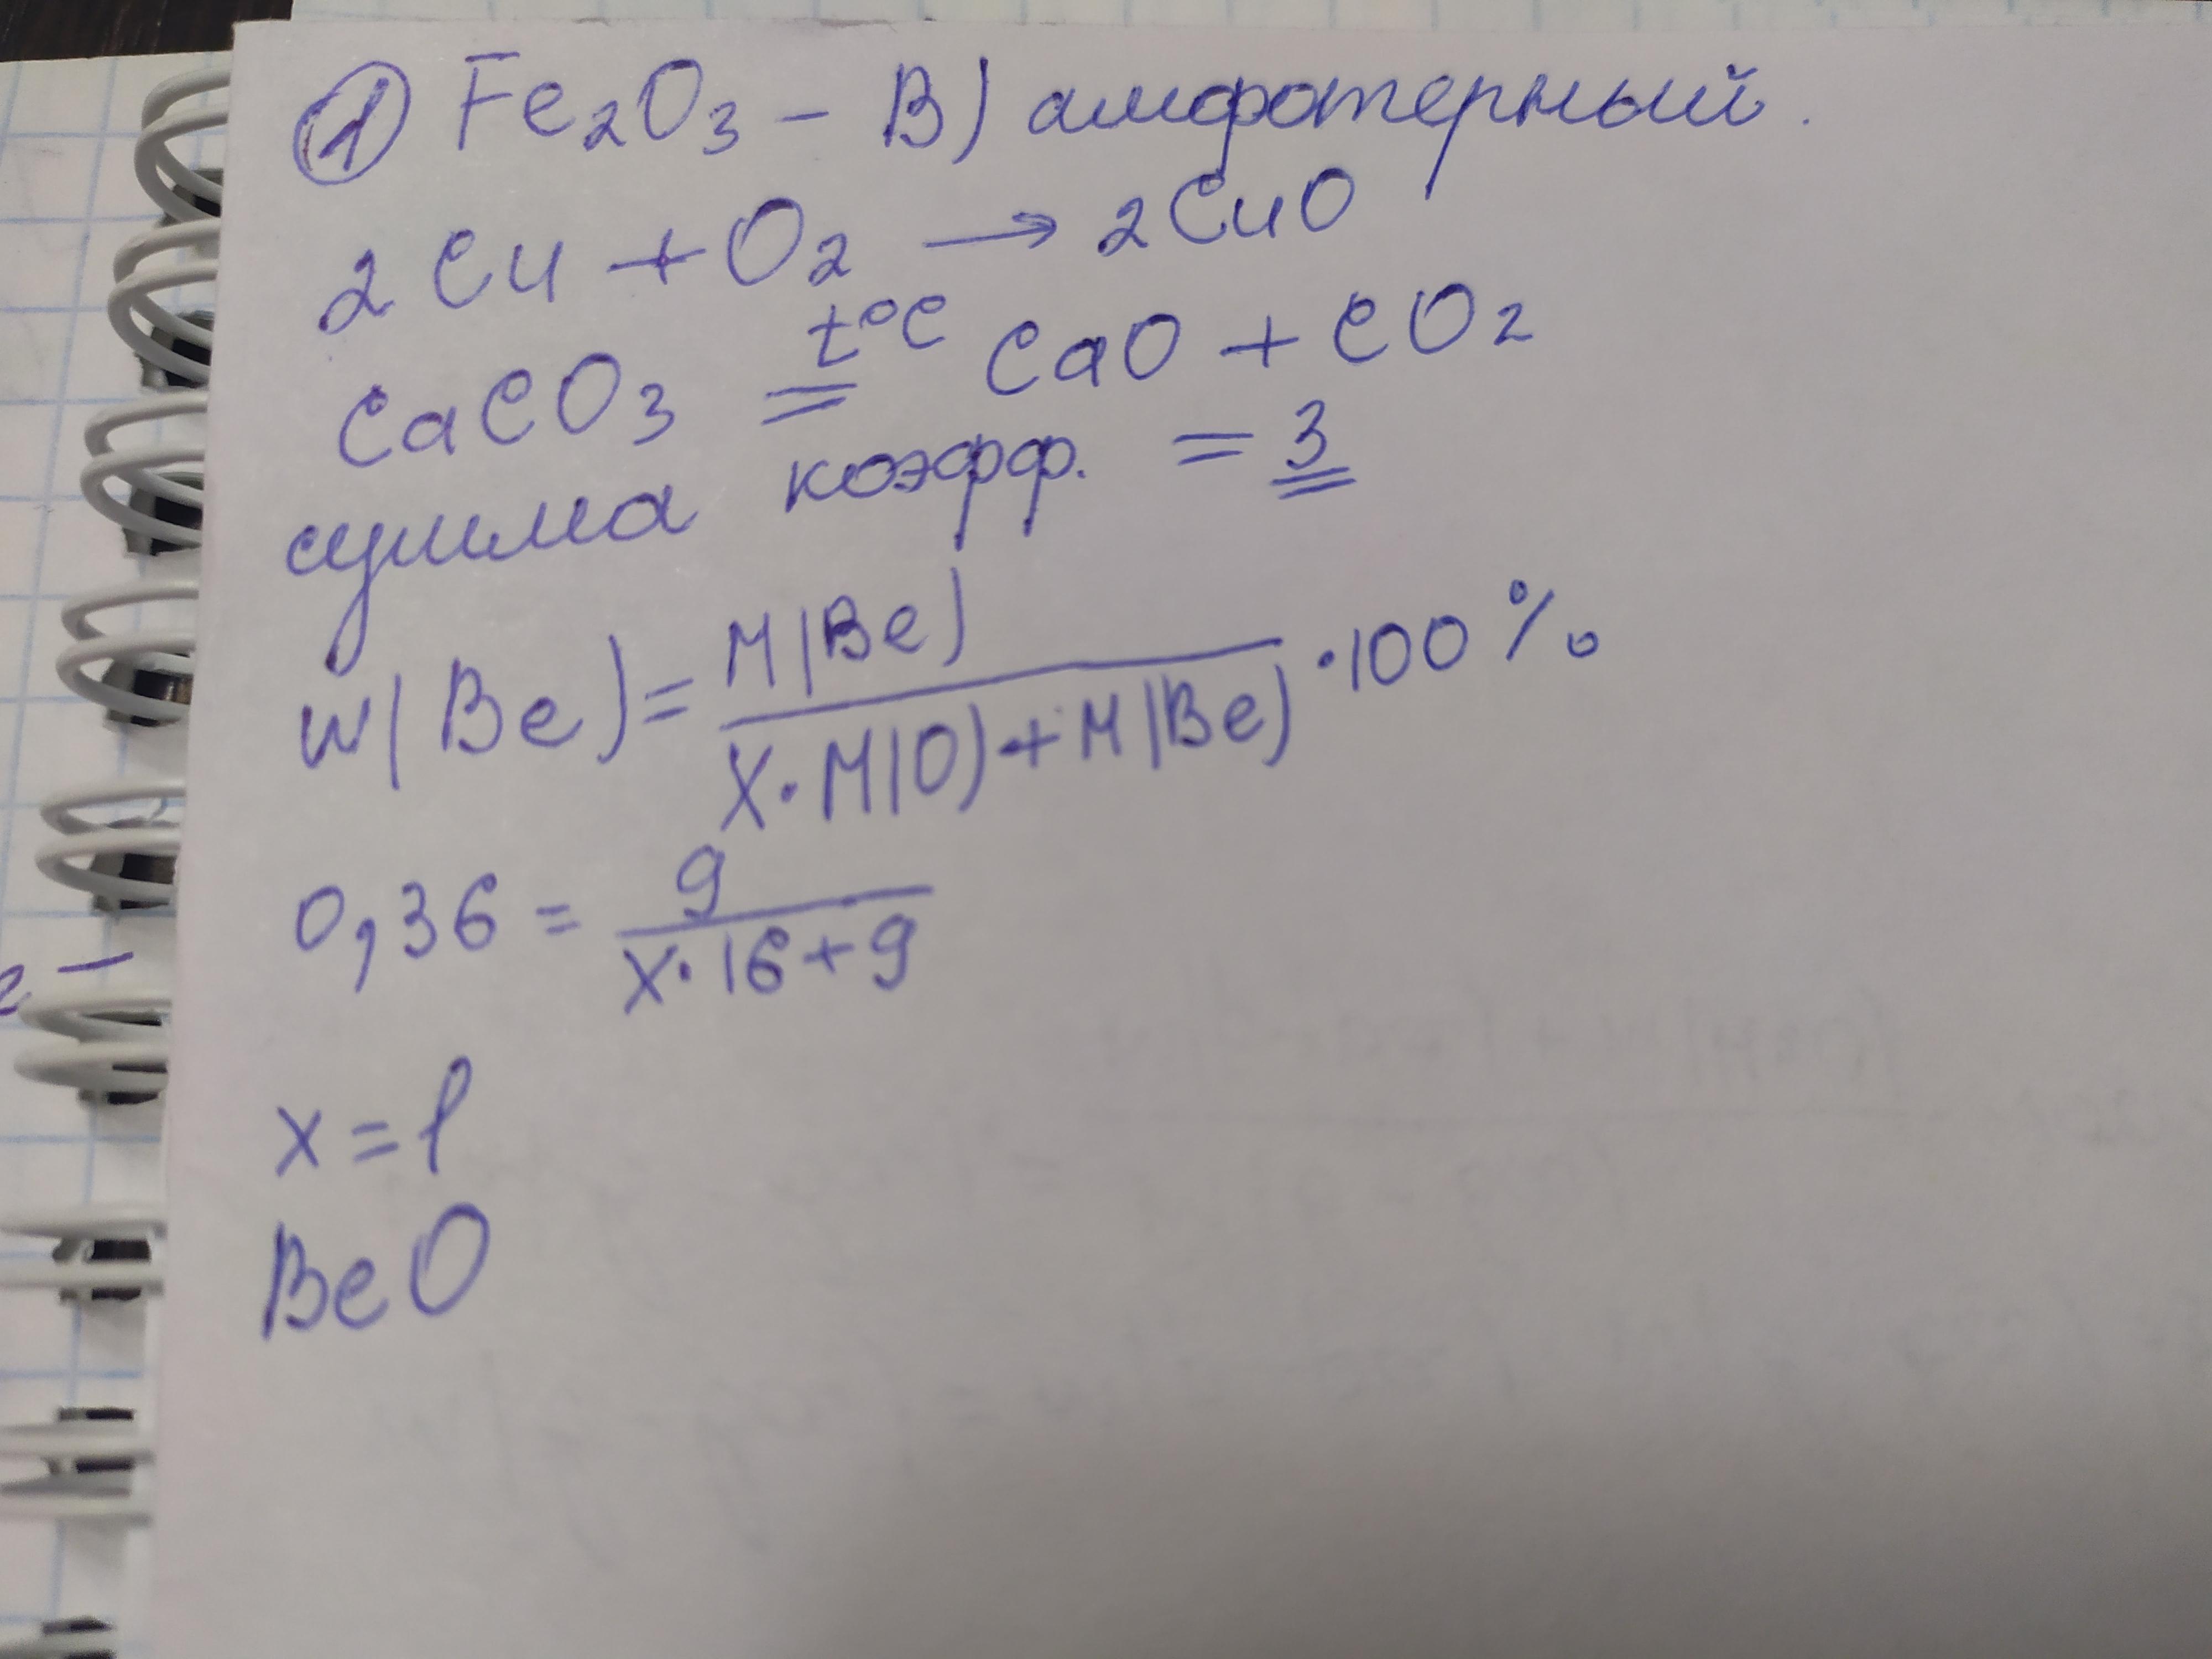 ① Fe₂O₃ – В) амфотерный.
2Cu + O₂ → 2CuO
CaCO₃ = t°C CaO + CO₂
сумма коэфф. = 3
W(Be) = M(Be) / X·M(O) + M(Be) · 100 %
0,36 = 9 / x·16 + 9
x = 1
BeO